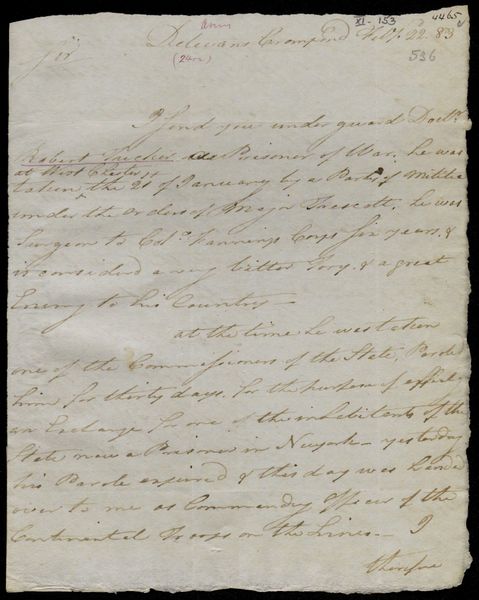 XI - 153
4465
Delevans Crompond Feby. 22. 83
(24th)
536
Sir
I send you under guard Doctr.
Robert Tucker as Prisoner of War. he was
at West Chester
taken the 21st of January by a Party of Militia
under the Orders of Major Trescott. he was
Surgeon to Colo. Fannings Corps six years, &
is considerd a very bitter Tory. & a great
Enemy to his Country —
at the time he was taken
one of the Commissioners of the State, Parole
him for thirty days. for the purpose of
an Exchange for one of the inhabitents of the
State now a Prisoner in Newyork — yesterday
his Parole expired & this day was handed
over to me as Commandg. Officer of the
Continental Troops on the Lines. — I
therefore